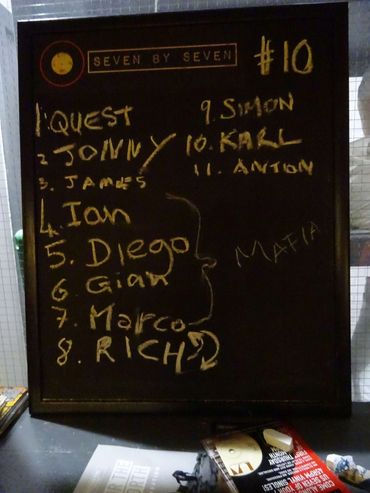 SEVEN BY SEVEN
#10
1. QUEST
2. JONNY
3. JAMES
4. Ian
5. Diego
6. Gian
7. Marco
8. RICH D
MAFIA
9. SIMON
10. KARL
11. ANTON